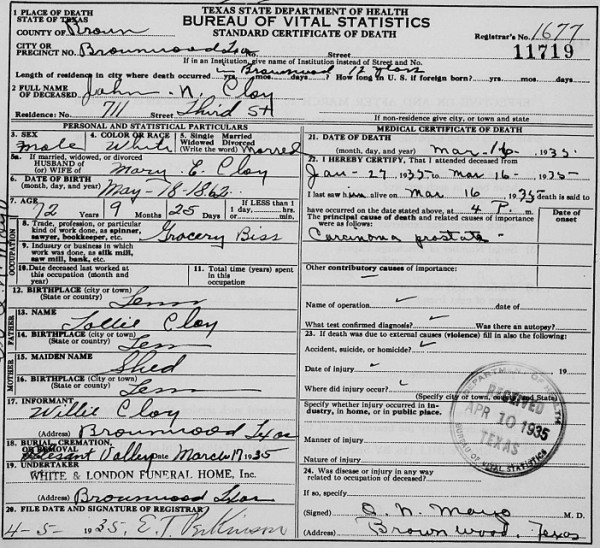 TEXAS STATE DEPARTMENT OF HEALTH
BUREAU OF VITAL STATISTICS
STANDARD CERTIFICATE OF DEATH
1 PLACE OF DEATH
STATE OF TEXAS
COUNTY OF Brown
Registrar's No. 1677
11719
CITY OR
PRECINCT NO. Brownwood Tex No. Street
If in an Institution, give Name of Institution instead of Street and No.
Length of residence in city where death occurred yrs. mos. days. How long in U. S. if foreign born? yrs. mos. days
in Brownwood 12 years
2 FULL NAME
OF DECEASED John N. Cloy
Residence: No. 711 Third St
If non-residence give city, or town and state
PERSONAL AND STATISTICAL PARTICULARS
3. SEX
male
4. COLOR OR RACE
White
5. Single Married
Widowed Divorced
(Write the word) Married
5a. If married, widowed, or divorced
HUSBAND OF
(or) WIFE OF Mary E. Cloy
6. DATE OF BIRTH
(month, day, and year) May-18-1862
7. AGE
72 Years 9 Months 25 Days
If LESS than
1 day, hrs.
or min.
OCCUPATION
8. Trade, profession, or particular
kind of work done, as spinner,
sawyer, bookkeeper, etc. Grocery Biss
9. Industry or business in which
work was done, as silk mill,
saw mill, bank, etc.
10. Date deceased last worked at
this occupation (month and
year)
11. Total time (years) spent in
this occupation.
12. BIRTHPLACE (city or town)
(State or country) Tenn
FATHER
13. NAME
Tollie Cloy
14. BIRTHPLACE (City or town)
(State or country) Tenn
MOTHER
15. MAIDEN NAME
Shed
16. BIRTHPLACE (City or town)
(State or country) Tenn
17. INFORMANT
Willie Cloy
(Address) Brownwood Texas
18. BURIAL, CREMATION,
OR REMOVAL
Pleasant Valley Date March 17 1935
19. UNDERTAKER
WHITE & LONDON FUNERAL HOME, Inc.
(Address) Brownwood Texas
20. FILE DATE AND SIGNATURE OF REGISTRAR
4-5-1935 E. T. Perkinson
MEDICAL CERTIFICATE OF DEATH
21. DATE OF DEATH
(month, day, and year) Mar-16- 1935
22. I HEREBY CERTIFY, That I attended deceased from
Jan-27 1935 to Mar-16-1935
I last saw him alive on Mar 16 1935 death is said to
have occurred on the date stated above, at 4 P. m.
The principal cause of death and related causes of importance
were as follows:
Date of
onset
Carcinoma prostate
Other contributory causes of importance:
Name of operation date of
What test confirmed diagnosis? Was there an autopsy?
23. If death was due to external causes (violence) fill in also the following:
Accident, suicide, or homicide?
Date of injury 19
Where did injury occur?
(Specify city or town, county, and State)
Specify whether injury occurred in in-
dustry, in home, or in public place.
Manner of injury
Nature of injury
DEPARTMENT OF HEALTH
RECEIVED
APR 10 1935
TEXAS
BUREAU OF VITAL STATISTICS
24. Was disease or injury in any way
related to occupation of deceased?
If so, specify
(Signed) O. N. Mayo M. D.
(Address) Brownwood, Texas